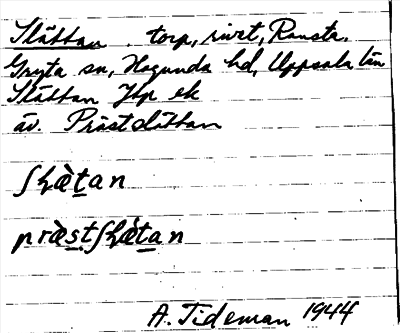 Slättan. torp, rivet, Ransta,
Gryta sn, Hagunda hd, Uppsala län
Slättan Jtp ek
äv. Prästslättan
ʃʅæ̀t̲an
præ̀s̲tʃʅæ̀t̲an
A. Tideman 1944